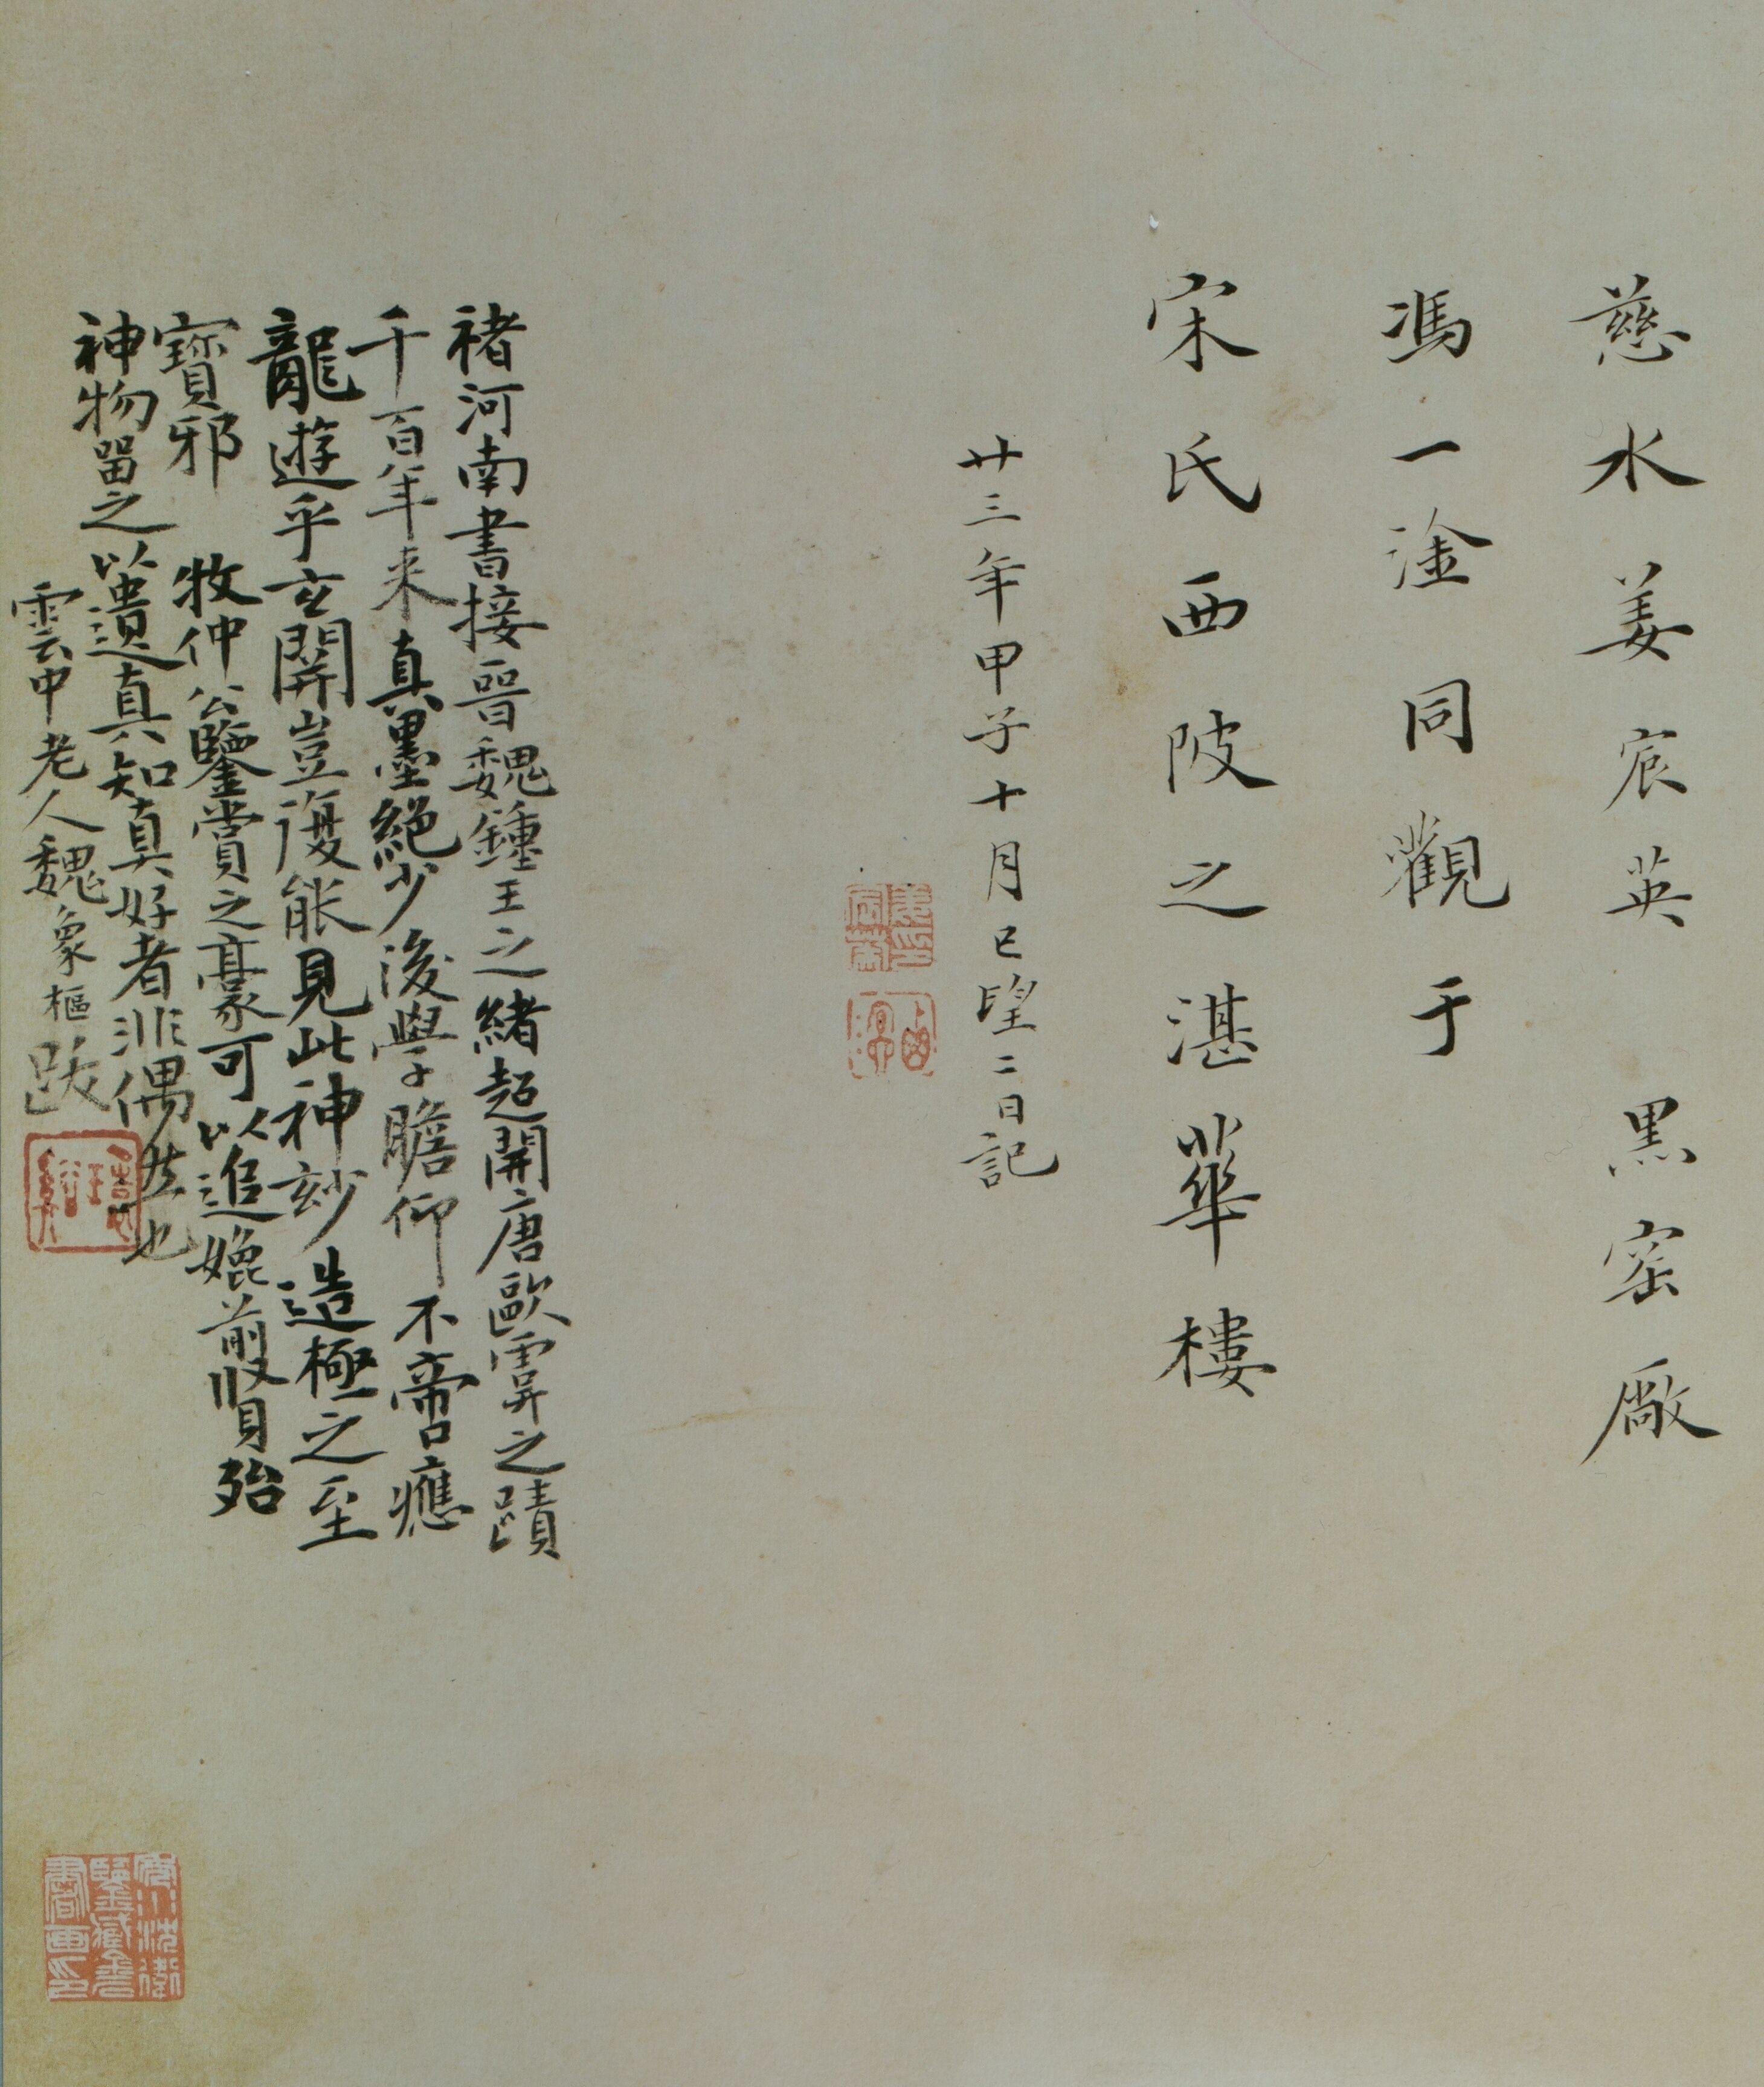 慈水姜宸英 黑窑厰
馮一淦同觀于
宋氏西陂之湛華樓
廿三年甲子十月已望二日記
褚河南書接晉魏鍾王之緒超開唐歐虞之蹟
千百年来真墨絶少後學瞻仰不啻癔
龍遊乎玄開豈復能見此神妙造極之至
寳邪 牧仲公鑒賞之豪可以追媲前賢殆
神物留之以遺真知真好者非偶然也
雲中老人魏象樞跋